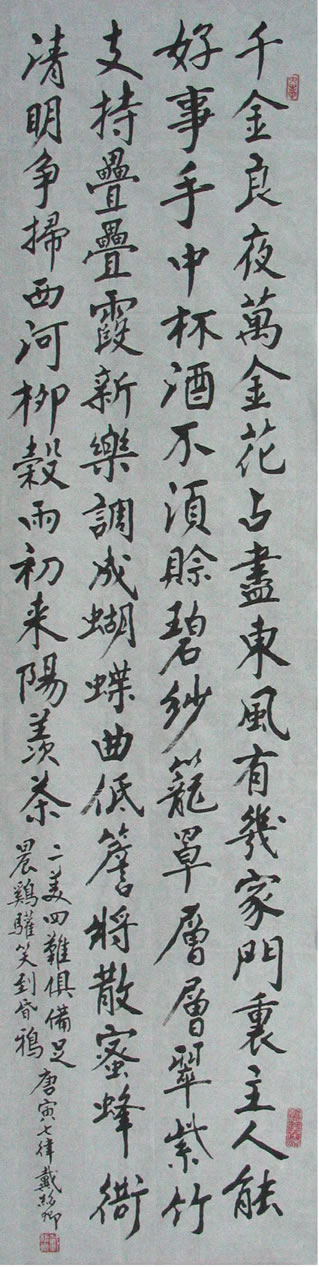 千金良夜萬金花占盡東風有幾家門裏主人能
好事手中杯酒不須賒碧紗籠罩層層翠紫竹
支持疊疊霞新樂調成蝴蝶曲低簷將散蜜蜂衙
清明争掃西河柳穀雨初来陽羡茶
二美四難俱備足
晨鷄驩笑到昏鴉
唐寅七律戴